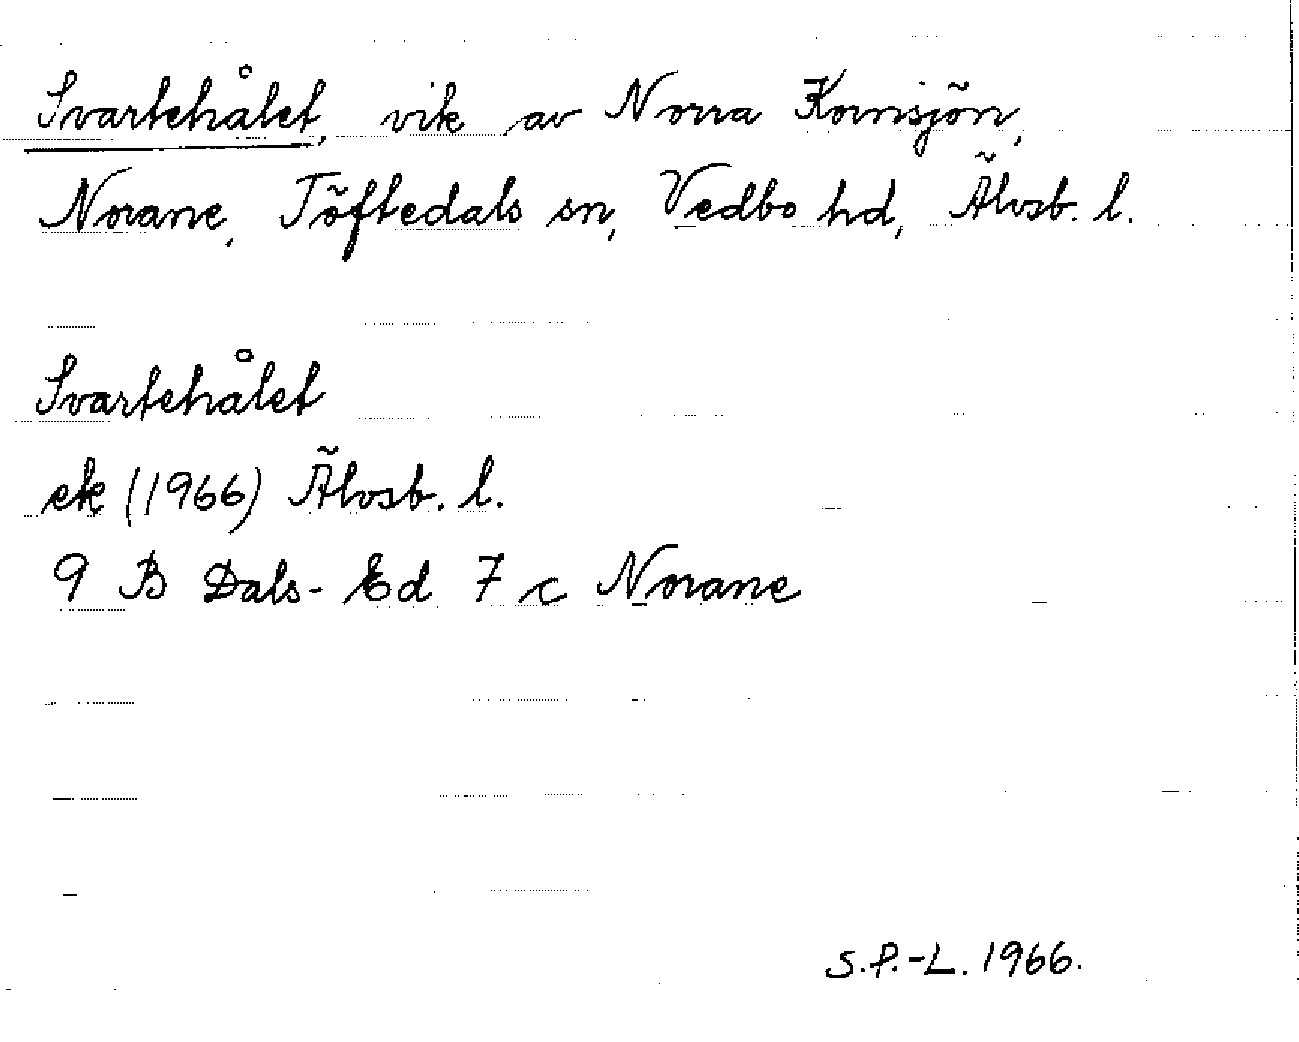 Svartehålet, vik av Norra Kornsjön,
Norane, Töftedals sn, Vedbo hd, Älvsb. l.
Svartehålet
ek (1966) Älvsb. l.
9 B Dals-Ed 7 c Norane
S.P.-L. 1966.